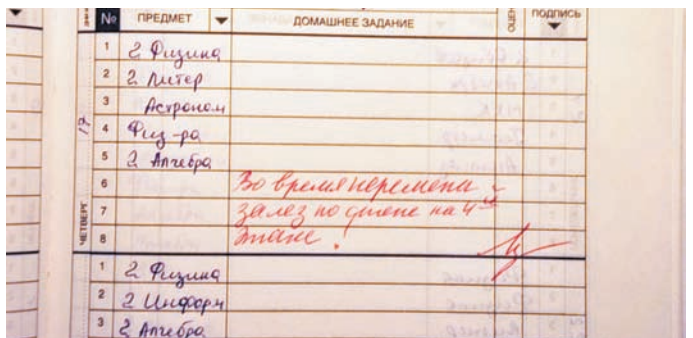 № ПРЕДМЕТ ДОМАШНЕЕ ЗАДАНИЕ ОЦЕН ПОДПИСЬ
17
ЧЕТВЕРГ
1 2 Физика
2 2 Литер
3 Астроном
4 Физ-ра
5 2 Алгебра
6 Во время перемены
7 залез по стене на 4ый
8 этаж!
1 2 Физика
2 2 Информ
3 2 Алгебра